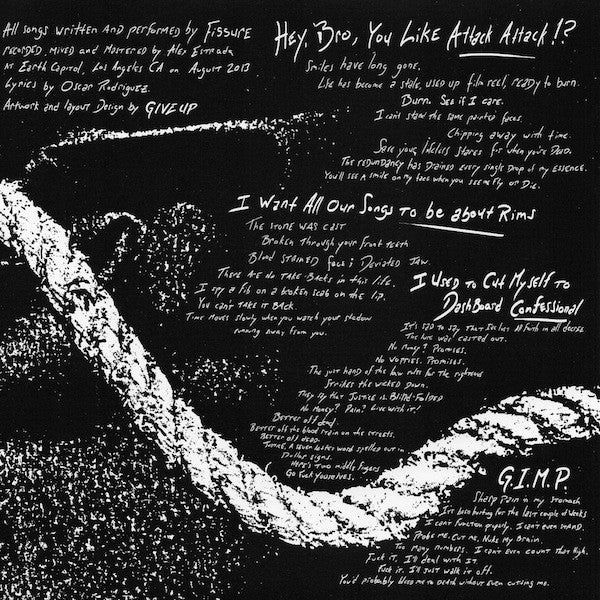 All songs written and performed by Fissure
recorded, mixed and mastered by Alex Estrada
at Earth Capitol, Los Angeles CA on August 2013
Lyrics by Oscar Rodriguez
Artwork and layout Design by GIVE UP
Hey, Bro, You Like Attack Attack!?
Smiles have long gone.
Life has become a stale, used up film reel, ready to burn.
Burn. See if I care.
I can't stand the same painted faces.
Chipping away with time.
Save your lifeless stares for when you're Dead.
The redundancy has Drained every single drop of my essence.
You'll see a smile on my face when you see me fly or Die.
I Want All Our Songs To be about Rims
The stone was cast
Broken through your front teeth
Blood stained face & Deviated Jaw.
There are no take backs in this life.
I spy a fib on a broken scab on the lip.
You can't take it back
Time moves slowly when you watch your shadow
running away from you.
I Used to Cut Myself To
DashBoard Confessional
It's sad to say, that faith in all decays
The was casted out.
No money? Promises.
No worries. Promises.
The just hand of the law rules for the righteous
Strikes the wicked down.
They say that Justice is Blind-folded
No Money? Pain? Live with it!
Better off dead.
Better off the blood stain on the streets.
Better off dead.
a seven letter word spelled out in
Dollar signs.
Here's two middle fingers
Go fuck yourselves.
G.I.M.P.
Sharp pain in my stomach
It's been hurting for the last couple of weeks
I can't function properly. I can't even stand.
Probe me. Cut me. Nuke my Brain.
Too many numbers. I can't even count that high.
Fuck it. I'll deal with it
Fuck it. I'll just walk it off.
You'd probably bleed me to death without even cutting me.